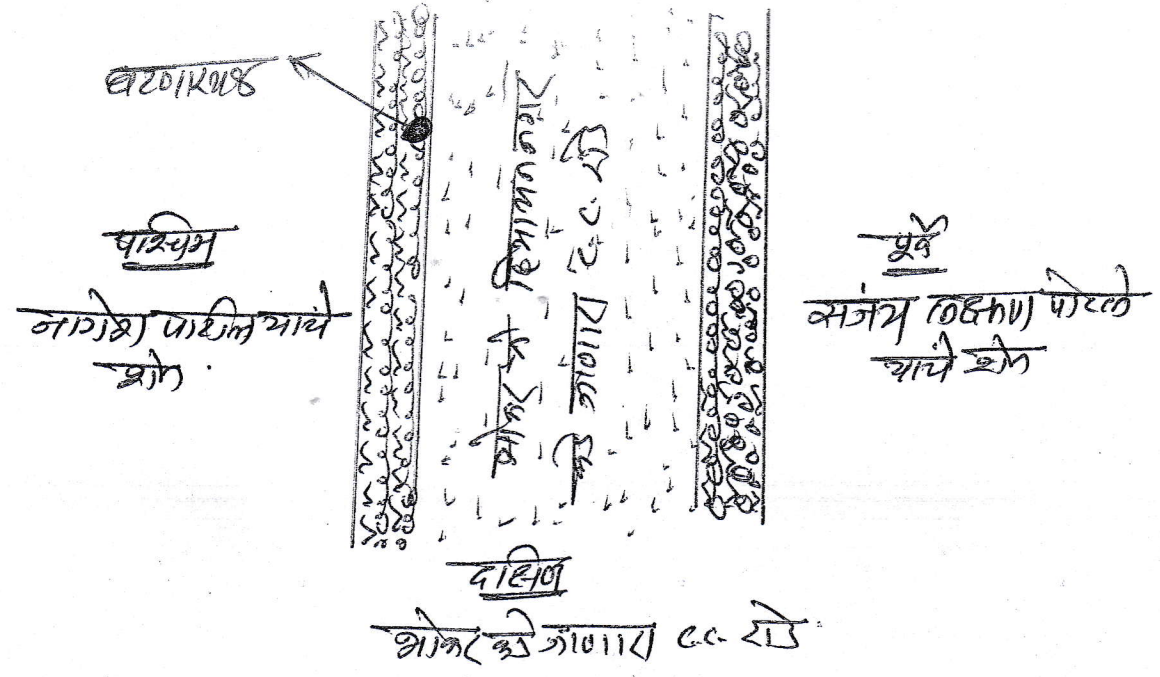 घटनास्थळ
पश्चिम
नागेश पाटील यांचे
शेत
भोकर कडे जाणारा
C.C. रोड
पूर्व
संजय लक्ष्मण पोटले
यांचे शेत
दक्षिण
भोकर कडे जाणारा C.C. रोड